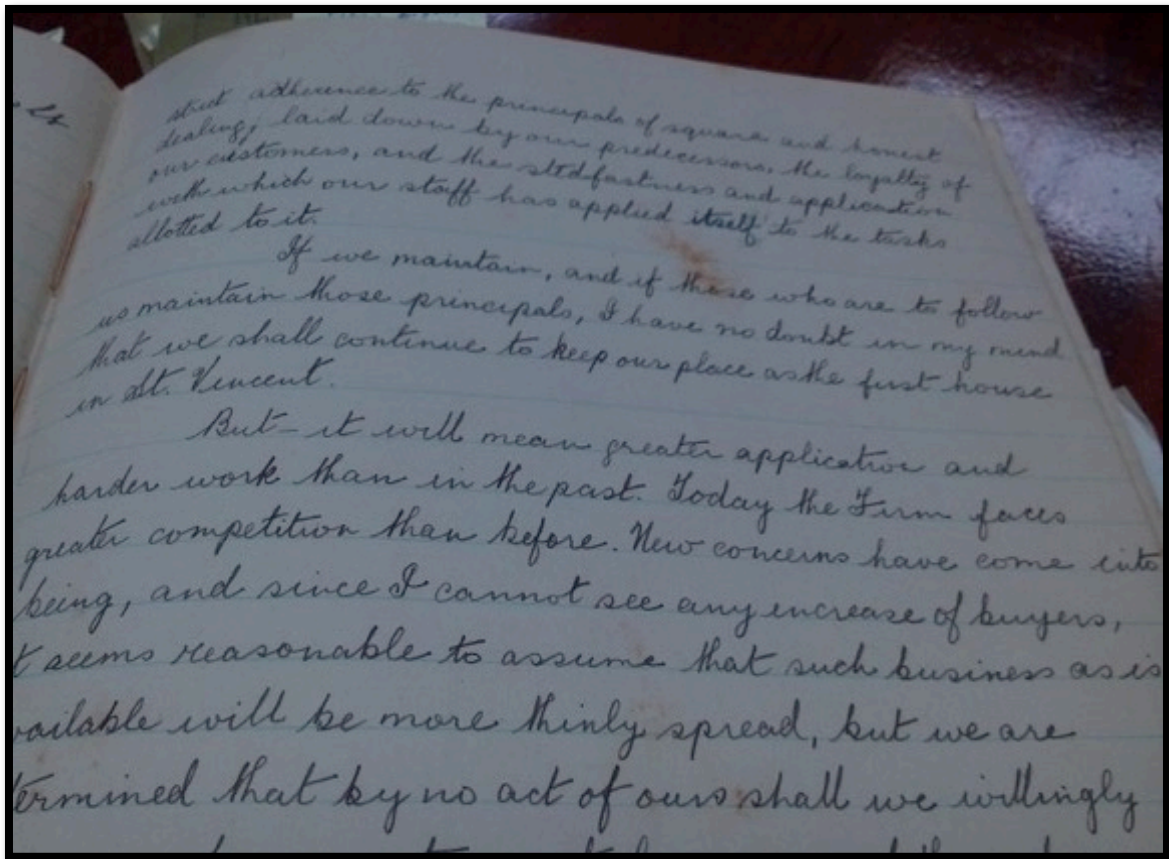 strict adherence to the principals of square and honest
dealing, laid down by our predecessors, the loyalty of
our customers, and the stedfastness and application
with which our staff has applied itself to the tasks
allotted to it.
If we maintain, and if those who are to follow
us maintain those principals, I have no doubt in my mind
that we shall continue to keep our place as the first house
in St. Vincent.
But - it will mean greater application and
harder work than in the past. Today the Firm faces
greater competition than before. New concerns have come into
being, and since I cannot see any increase of buyers,
t seems reasonable to assume that such business as is
vailable will be more thinly spread, but we are
termined that by no act of ours shall we willingly